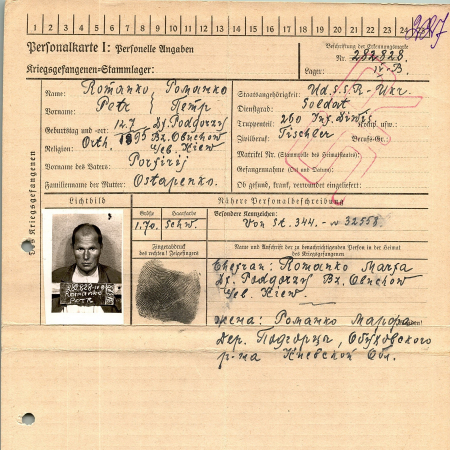 1 2 3 4 5 6 7 8 9 10 11 12 13 14 15 16 17 18 19 20 21 22 23 24
Personalkarte I: Personelle Angaben
Beschriftung der Erkennungsmarke
Nr. 282828
Kriegsgefangenen-Stammlager:
Lager: IV B.
Des Kriegsgefangenen
Name: Romanko, Романко
Vorname: Petr Петр
Geburtstag und -ort: 12.7 1895 Df. Podgorzy Bz. Obuchow
Religion: Orth. Geb. Kiew
Vorname des Vaters: Porfirij
Familienname der Mutter: Ostapenko.
Staatsangehörigkeit: Ud.S.S.R-Ukr.
Dienstgrad: Soldat
Truppenteil: 260 Inf. Diwis. Komp. usw.:
Zivilberuf: Tischler Berufs-Gr.:
Matrikel Nr. (Stammrolle des Heimatstaates):
Gefangennahme (Ort und Datum):
Ob gesund, krank, verwundet eingeliefert:
Lichtbild
Nähere Personalbeschreibung
Größe Haarfarbe Besondere Kennzeichen:
1.70. Schw. Von St. 344. - № 32558.
Fingerabdruck
des rechten! Zeigefingers
Name und Anschrift der zu benachrichtigenden Person in der Heimat
des Kriegsgefangenen
Ehefrau: Romanko Marfa
Df. Podgorzy Bz. Obuchow
Geb. Kiew
Romanko
Petr
жена: Романко Марфа
Дер. Подгорцы, Обуховского
р-на Киевской Обл.